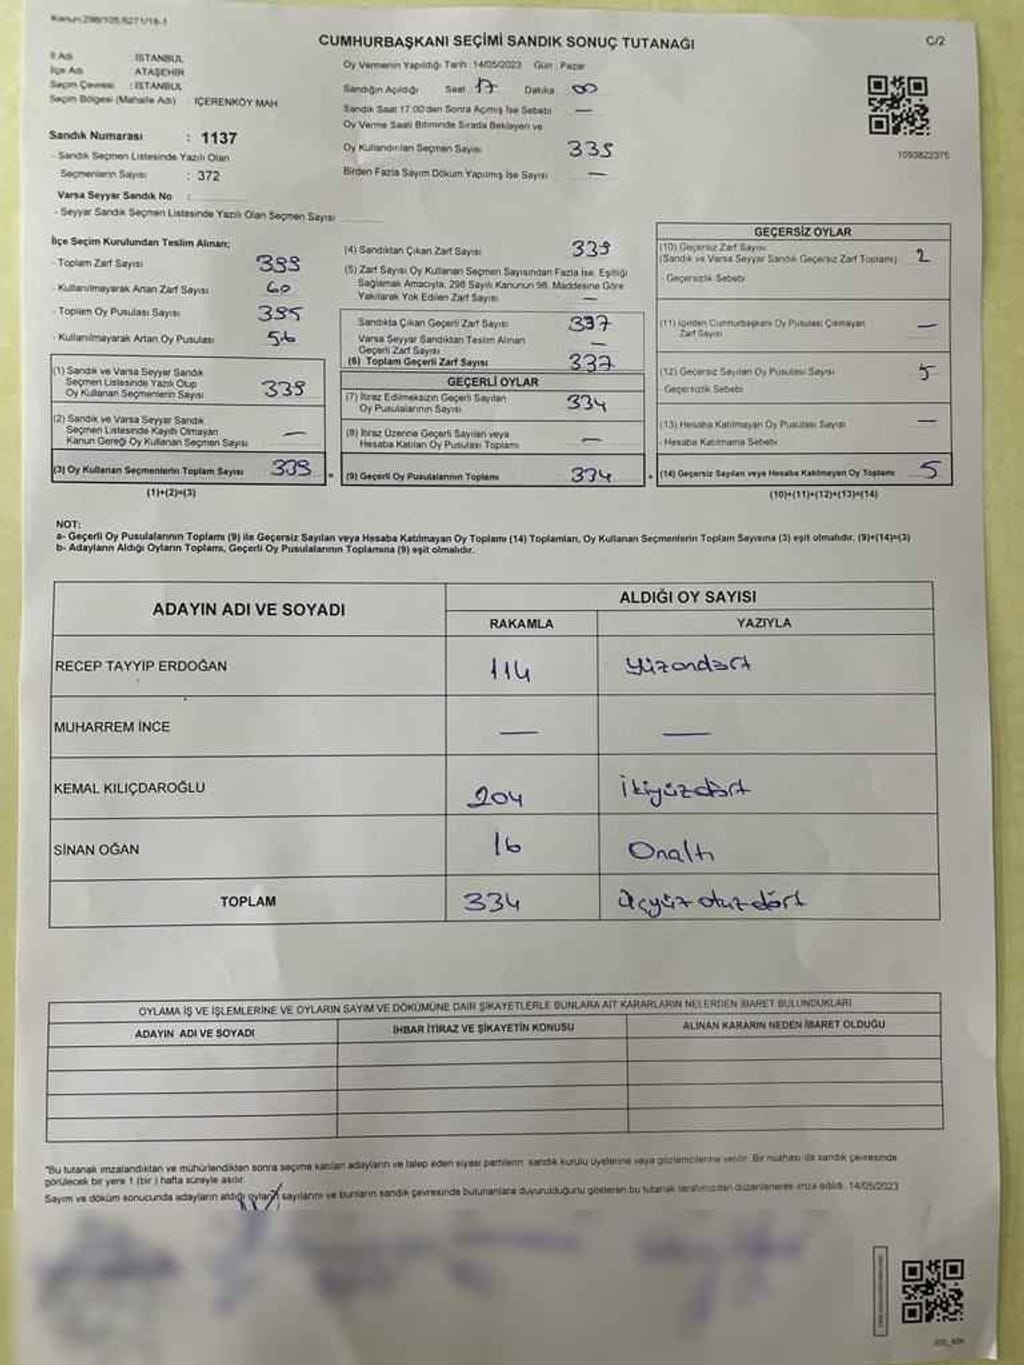 Kanun:298/105,6271/19-1
C/2
CUMHURBAŞKANI SEÇİMİ SANDIK SONUÇ TUTANAĞI
İl Adı : İSTANBUL
İlçe Adı : ATAŞEHİR
Seçim Çevresi : İSTANBUL
Seçim Bölgesi (Mahalle Adı) İÇERENKÖY MAH
Sandık Numarası : 1137
- Sandık Seçmen Listesinde Yazılı Olan
Seçmenlerin Sayısı : 372
Varsa Seyyar Sandık No :
- Seyyar Sandık Seçmen Listesinde Yazılı Olan Seçmen Sayısı
Oy Vermenin Yapıldığı Tarih : 14/05/2023 Gün : Pazar
Sandığın Açıldığı Saat 17 Dakika 00
Sandık Saat 17:00'den Sonra Açılmış İse Sebebi —
Oy Verme Saati Bitiminde Sırada Bekleyen ve
Oy Kullandırılan Seçmen Sayısı 335
Birden Fazla Sayım Döküm Yapılmış İse Sayısı —
1093822376
İlçe Seçim Kurulundan Teslim Alınan;
- Toplam Zarf Sayısı 399
- Kullanılmayarak Artan Zarf Sayısı 60
- Toplam Oy Pusulası Sayısı 395
- Kullanılmayarak Artan Oy Pusulası 56
(1) Sandık ve Varsa Seyyar Sandık
Seçmen Listesinde Yazılı Olup
Oy Kullanan Seçmenlerin Sayısı 339
(2) Sandık ve Varsa Seyyar Sandık
Seçmen Listesinde Kayıtlı Olmayan
Kanun Gereği Oy Kullanan Seçmen Sayısı —
(3) Oy Kullanan Seçmenlerin Toplam Sayısı 339
(1)+(2)=(3)
(4) Sandıktan Çıkan Zarf Sayısı 339
(5) Zarf Sayısı Oy Kullanan Seçmen Sayısından Fazla İse, Eşitliği
Sağlamak Amacıyla, 298 Sayılı Kanunun 98. Maddesine Göre
Yakılarak Yok Edilen Zarf Sayısı —
Sandıkta Çıkan Geçerli Zarf Sayısı 337
Varsa Seyyar Sandıktan Teslim Alınan
Geçerli Zarf Sayısı —
(6) Toplam Geçerli Zarf Sayısı 337
GEÇERLİ OYLAR
(7) İtiraz Edilmeksizin Geçerli Sayılan
Oy Pusulalarının Sayısı 334
(8) İtiraz Üzerine Geçerli Sayılan veya
Hesaba Katılan Oy Pusulası Toplamı —
= (9) Geçerli Oy Pusulalarının Toplamı 334
GEÇERSİZ OYLAR
(10) Geçersiz Zarf Sayısı
(Sandık ve Varsa Seyyar Sandık Geçersiz Zarf Toplamı) 2
- Geçersizlik Sebebi
(11) İçinden Cumhurbaşkanı Oy Pusulası Çıkmayan
Zarf Sayısı —
(12) Geçersiz Sayılan Oy Pusulası Sayısı 5
- Geçersizlik Sebebi
(13) Hesaba Katılmayan Oy Pusulası Sayısı —
- Hesaba Katılmama Sebebi
+ (14) Geçersiz Sayılan veya Hesaba Katılmayan Oy Toplamı 5
(10)+(11)+(12)+(13)=(14)
NOT:
a- Geçerli Oy Pusulalarının Toplamı (9) ile Geçersiz Sayılan veya Hesaba Katılmayan Oy Toplamı (14) Toplamları, Oy Kullanan Seçmenlerin Toplam Sayısına (3) eşit olmalıdır. (9)+(14)=(3)
b- Adayların Aldığı Oyların Toplamı, Geçerli Oy Pusulalarının Toplamına (9) eşit olmalıdır.
ADAYIN ADI VE SOYADI ALDIĞI OY SAYISI
RAKAMLA YAZIYLA
RECEP TAYYIP ERDOĞAN 114 Yüzondört
MUHARREM İNCE — —
KEMAL KILIÇDAROĞLU 204 İkiyüzdört
SİNAN OĞAN 16 Onaltı
TOPLAM 334 Üçyüzotuzdört
OYLAMA İŞ VE İŞLEMLERİNE VE OYLARIN SAYIM VE DÖKÜMÜNE DAİR ŞİKAYETLERLE BUNLARA AİT KARARLARIN NELERDEN İBARET BULUNDUKLARI
ADAYIN ADI VE SOYADI İHBAR İTİRAZ VE ŞİKAYETİN KONUSU ALINAN KARARIN NEDEN İBARET OLDUĞU
*Bu tutanak imzalandıktan ve mühürlendikten sonra seçime katılan adayların ve talep eden siyasi partilerin sandık kurulu üyelerine veya gözlemcilerine verilir. Bir nüshası da sandık çevresinde
görülecek bir yere 1 (bir ) hafta süreyle asılır.
Sayım ve döküm sonucunda adayların aldığı oyların sayılarını ve bunların sandık çevresinde bulunanlara duyurulduğunu gösteren bu tutanak tarafımızdan düzenlenerek imza edildi. 14/05/2023